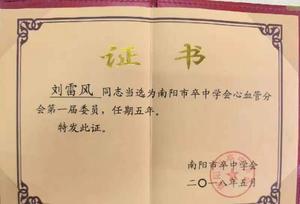 证书
刘雷风 同志当选为南阳市卒中学会心血管分
会第一届委员，任期五年。
特发此证。
南阳市卒中学会
二〇一八年五月